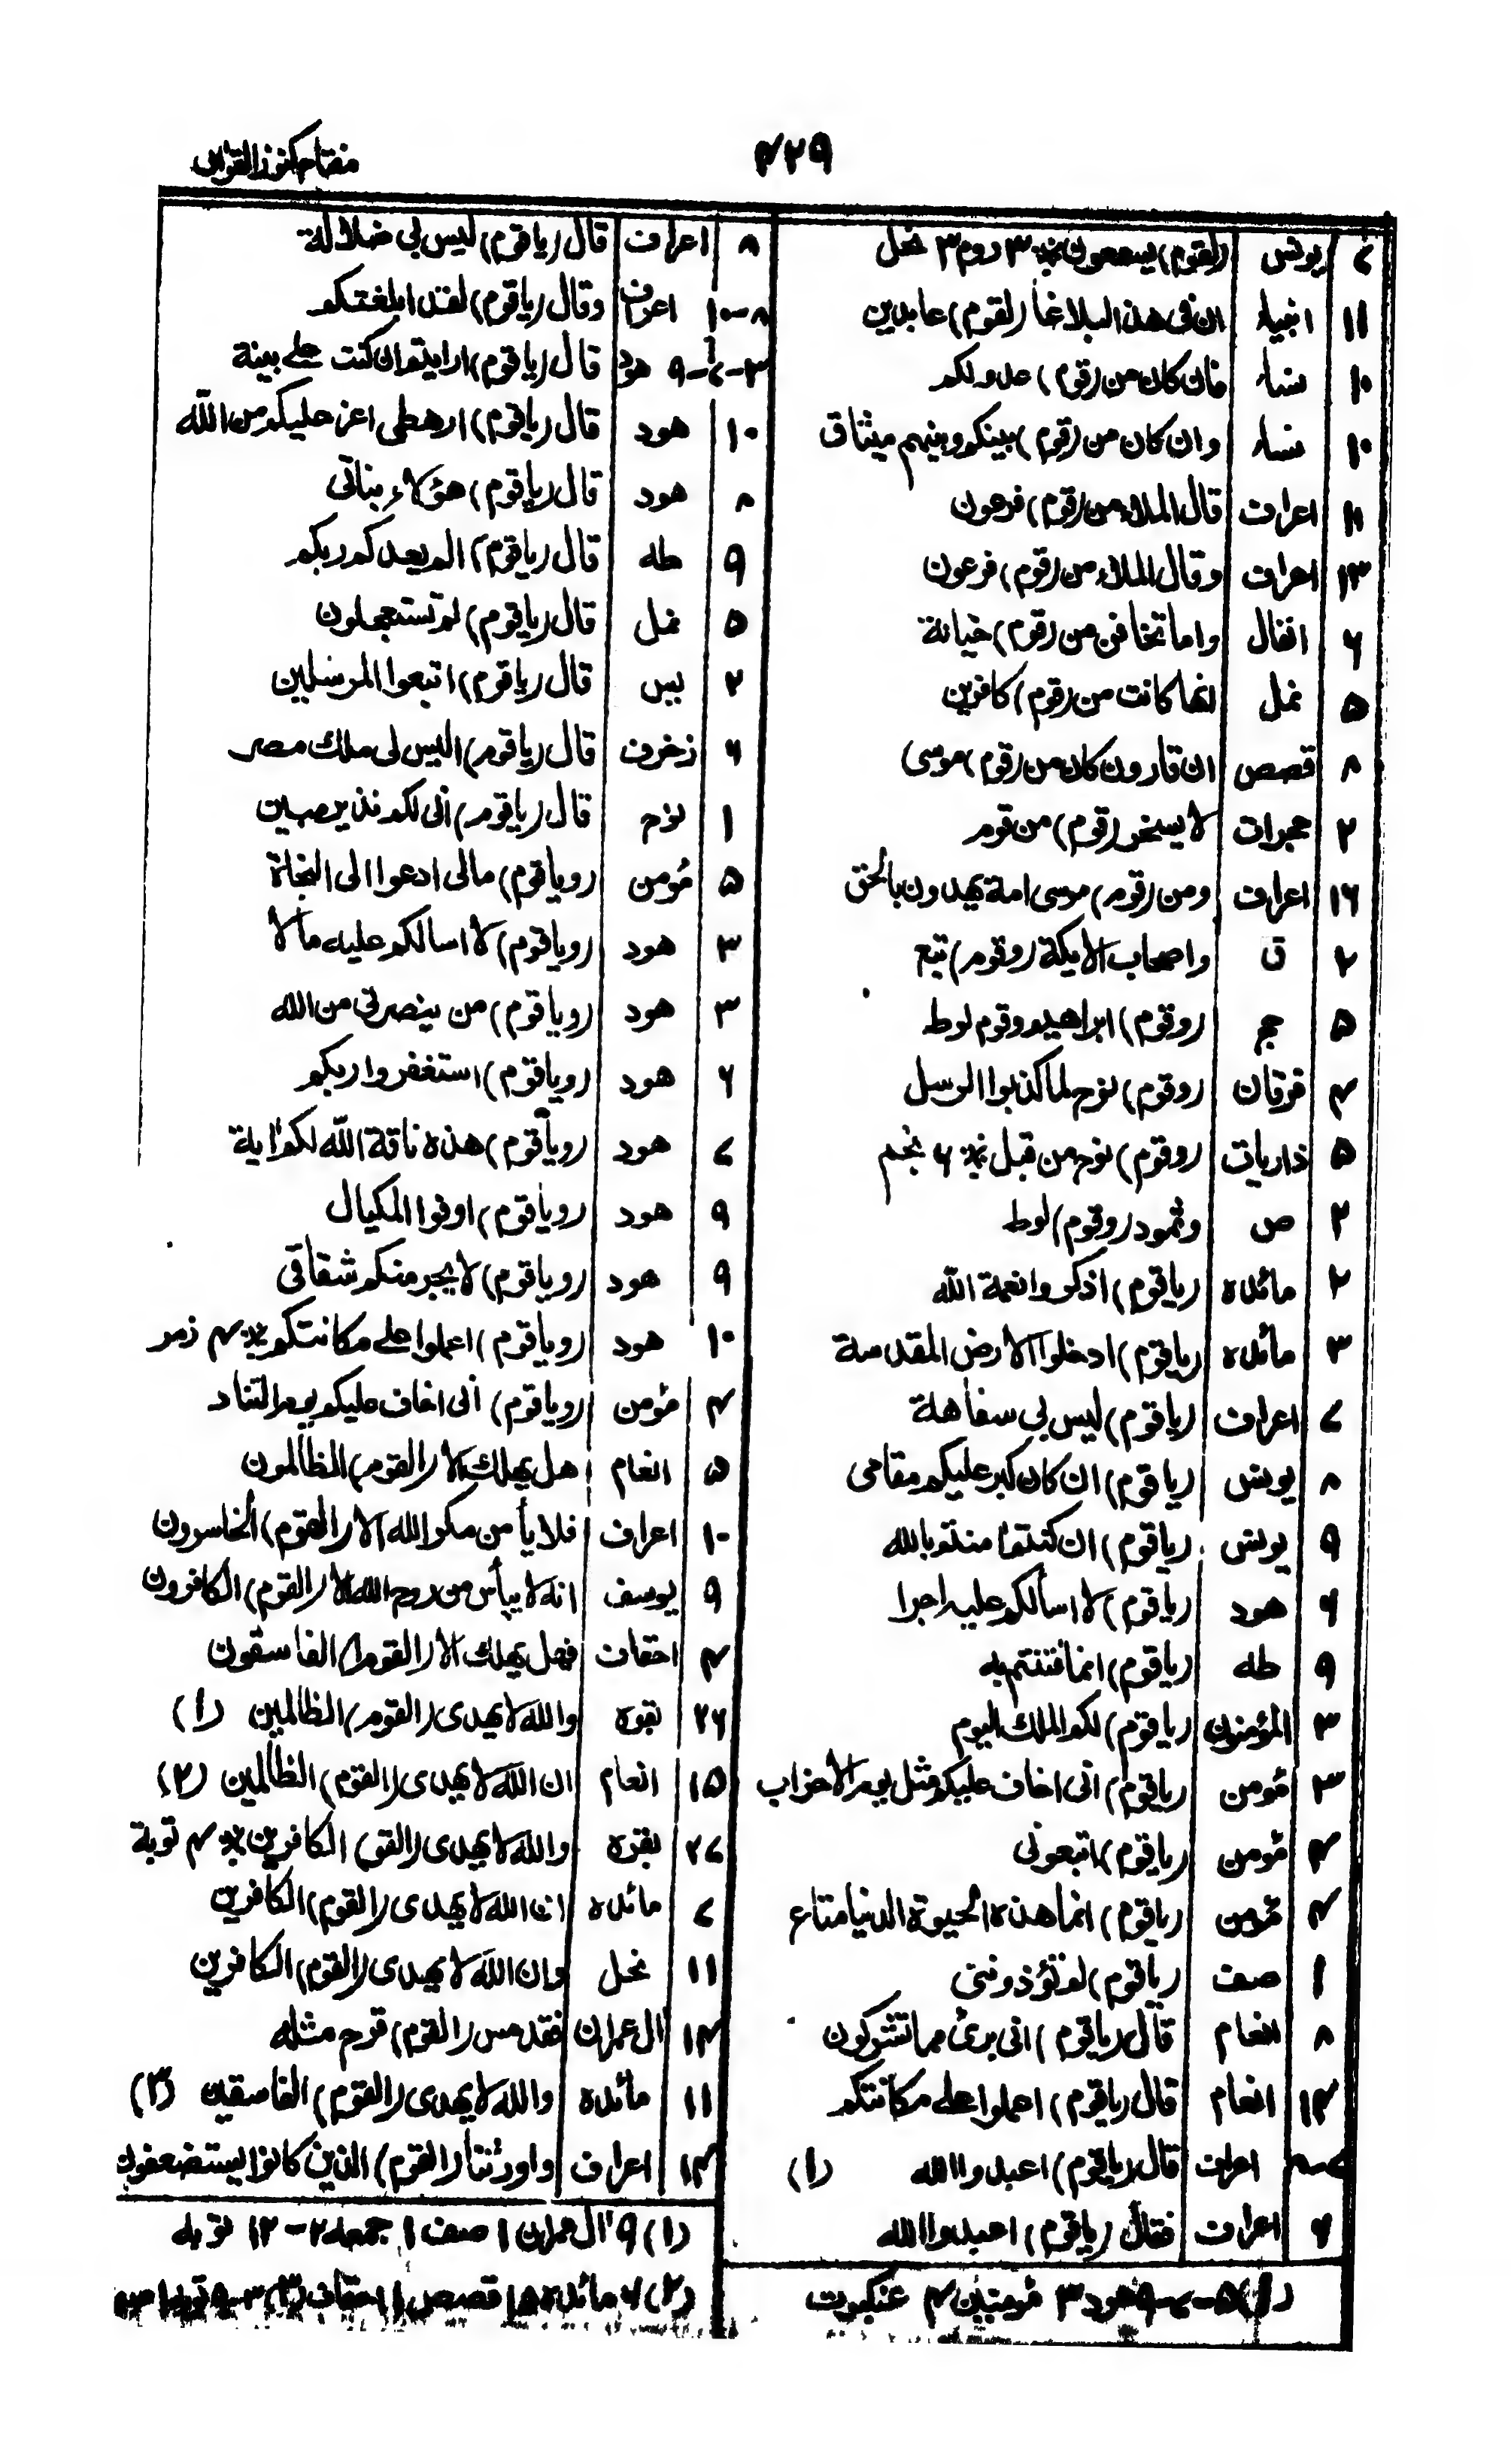 ۴۲۹
مفتاح کنوز القران
۷ یونس (لقوم) یسمعون ※ ۳ روم ۳ نحل
۱۱ انبیاء ان فی هذا لبلاغا (لقوم) عابدین
۱۰ نساء فان کان من (قوم) عدو لکم
۱۰ نساء وان کان من (قوم) بینکم وبینهم میثاق
۱۱ اعراف قال الملاء من (قوم) فرعون
۱۳ اعراف وقال الملاء من (قوم) فرعون
۶ انفال واما تخافن من (قوم) خیانة
۵ نمل انها کانت من (قوم) کافرین
۸ قصص ان قارون کان من (قوم) موسی
۲ حجرات لا یسخر (قوم) من قوم
۱۶ اعراف ومن (قوم) موسی امة یهدون بالحق
۲ ق واصحاب الایکة (وقوم) تبع
۵ حج (وقوم) ابراهیم وقوم لوط
۴ فرقان (وقوم) نوح لما کذبوا الرسل
۵ ذاریات (وقوم) نوح من قبل ※ ۶ نجم
۲ ص وثمود (وقوم) لوط
۲ مائده (یاقوم) اذکروا نعمة الله
۳ مائده (یاقوم) ادخلوا الارض المقدسة
۷ اعراف (یاقوم) لیس بی سفاهة
۸ یونس (یاقوم) ان کان کبر علیکم مقامی
۹ یونس (یاقوم) ان کنتم امنتم بالله
۶ هود (یاقوم) لا اسألکم علیه اجرا
۹ طه (یاقوم) انما فتنتم به
۳ المؤمنون (یاقوم) لکم الملك الیوم
۳ مؤمن (یاقوم) انی اخاف علیکم مثل یوم الاحزاب
۴ مؤمن (یاقوم) اتبعونی
۴ مؤمن (یاقوم) انما هذه الحیوة الدنیا متاع
۱ صف (یاقوم) لم تؤذوننی
۸ انعام قال (یاقوم) انی برئ مما تشرکون
۱۴ انعام قال (یاقوم) اعملوا علی مکانتکم
۷-۸ اعراف قال (یاقوم) اعبدوا الله (۱)
۶ اعراف فقال (یاقوم) اعبدوا الله
(۱) ۵-۶-۹ هود ۳ مؤمنین ۴ عنکبوت
۸ اعراف قال (یاقوم) لیس بی ضلالة
۸-۱۰ اعراف وقال (یاقوم) لقد ابلغتکم
۳-۶-۹ هود قال (یاقوم) ارایتم ان کنت علی بینة
۱۰ هود قال (یاقوم) ارهطی اعز علیکم من الله
۸ هود قال (یاقوم) هؤلاء بناتی
۹ طه قال (یاقوم) الم یعدکم ربکم
۵ نمل قال (یاقوم) لم تستعجلون
۲ یس قال (یاقوم) اتبعوا المرسلین
۶ زخرف قال (یاقوم) الیس لی ملك مصر
۱ نوح قال (یاقوم) انی لکم نذیر مبین
۵ مؤمن (ویاقوم) مالی ادعوا الی النجاة
۳ هود (ویاقوم) لا اسالکم علیه مالا
۳ هود (ویاقوم) من ینصرنی من الله
۶ هود (ویاقوم) استغفروا ربکم
۷ هود (ویاقوم) هذه ناقة الله لکم اية
۹ هود (ویاقوم) اوفوا المکیال
۹ هود (ویاقوم) لا یجرمنکم شقاقی
۱۰ هود (ویاقوم) اعملوا علی مکانتکم ※ ۴ زمر
۴ مؤمن (ویاقوم) انی اخاف علیکم یوم التناد
۵ انعام هل یهلك الا (القوم) الظالمون
۱۰ اعراف فلا یأمن مکر الله الا (القوم) الخاسرون
۹ یوسف انه لا ییأس من روح الله الا (القوم) الکافرون
۴ احقاف فهل یهلك الا (القوم) الفاسقون
۲۶ بقره والله لا یهدی (القوم) الظالمین (۱)
۱۵ انعام ان الله لا یهدی (القوم) الظالمین (۲)
۲۷ بقره والله لا یهدی (القوم) الکافرین ※ ۴ توبة
۷ مائده ان الله لا یهدی (القوم) الکافرین
۱۱ نحل وان الله لا یهدی (القوم) الکافرین
۱۴ ال عمران فقد مس (القوم) قرح مثله
۱۱ مائده والله لا یهدی (القوم) الفاسقین (۳)
۱۴ اعراف واورثنا (القوم) الذین کانوا یستضعفون
(۱) ۹ ال عمران ۱ صف ۱ جمعه ۲-۱۲ توبه
(۲) ۶ مائده ۵ قصص ۱ احقاف (۳) ۳-۸ توبه ۱ صف